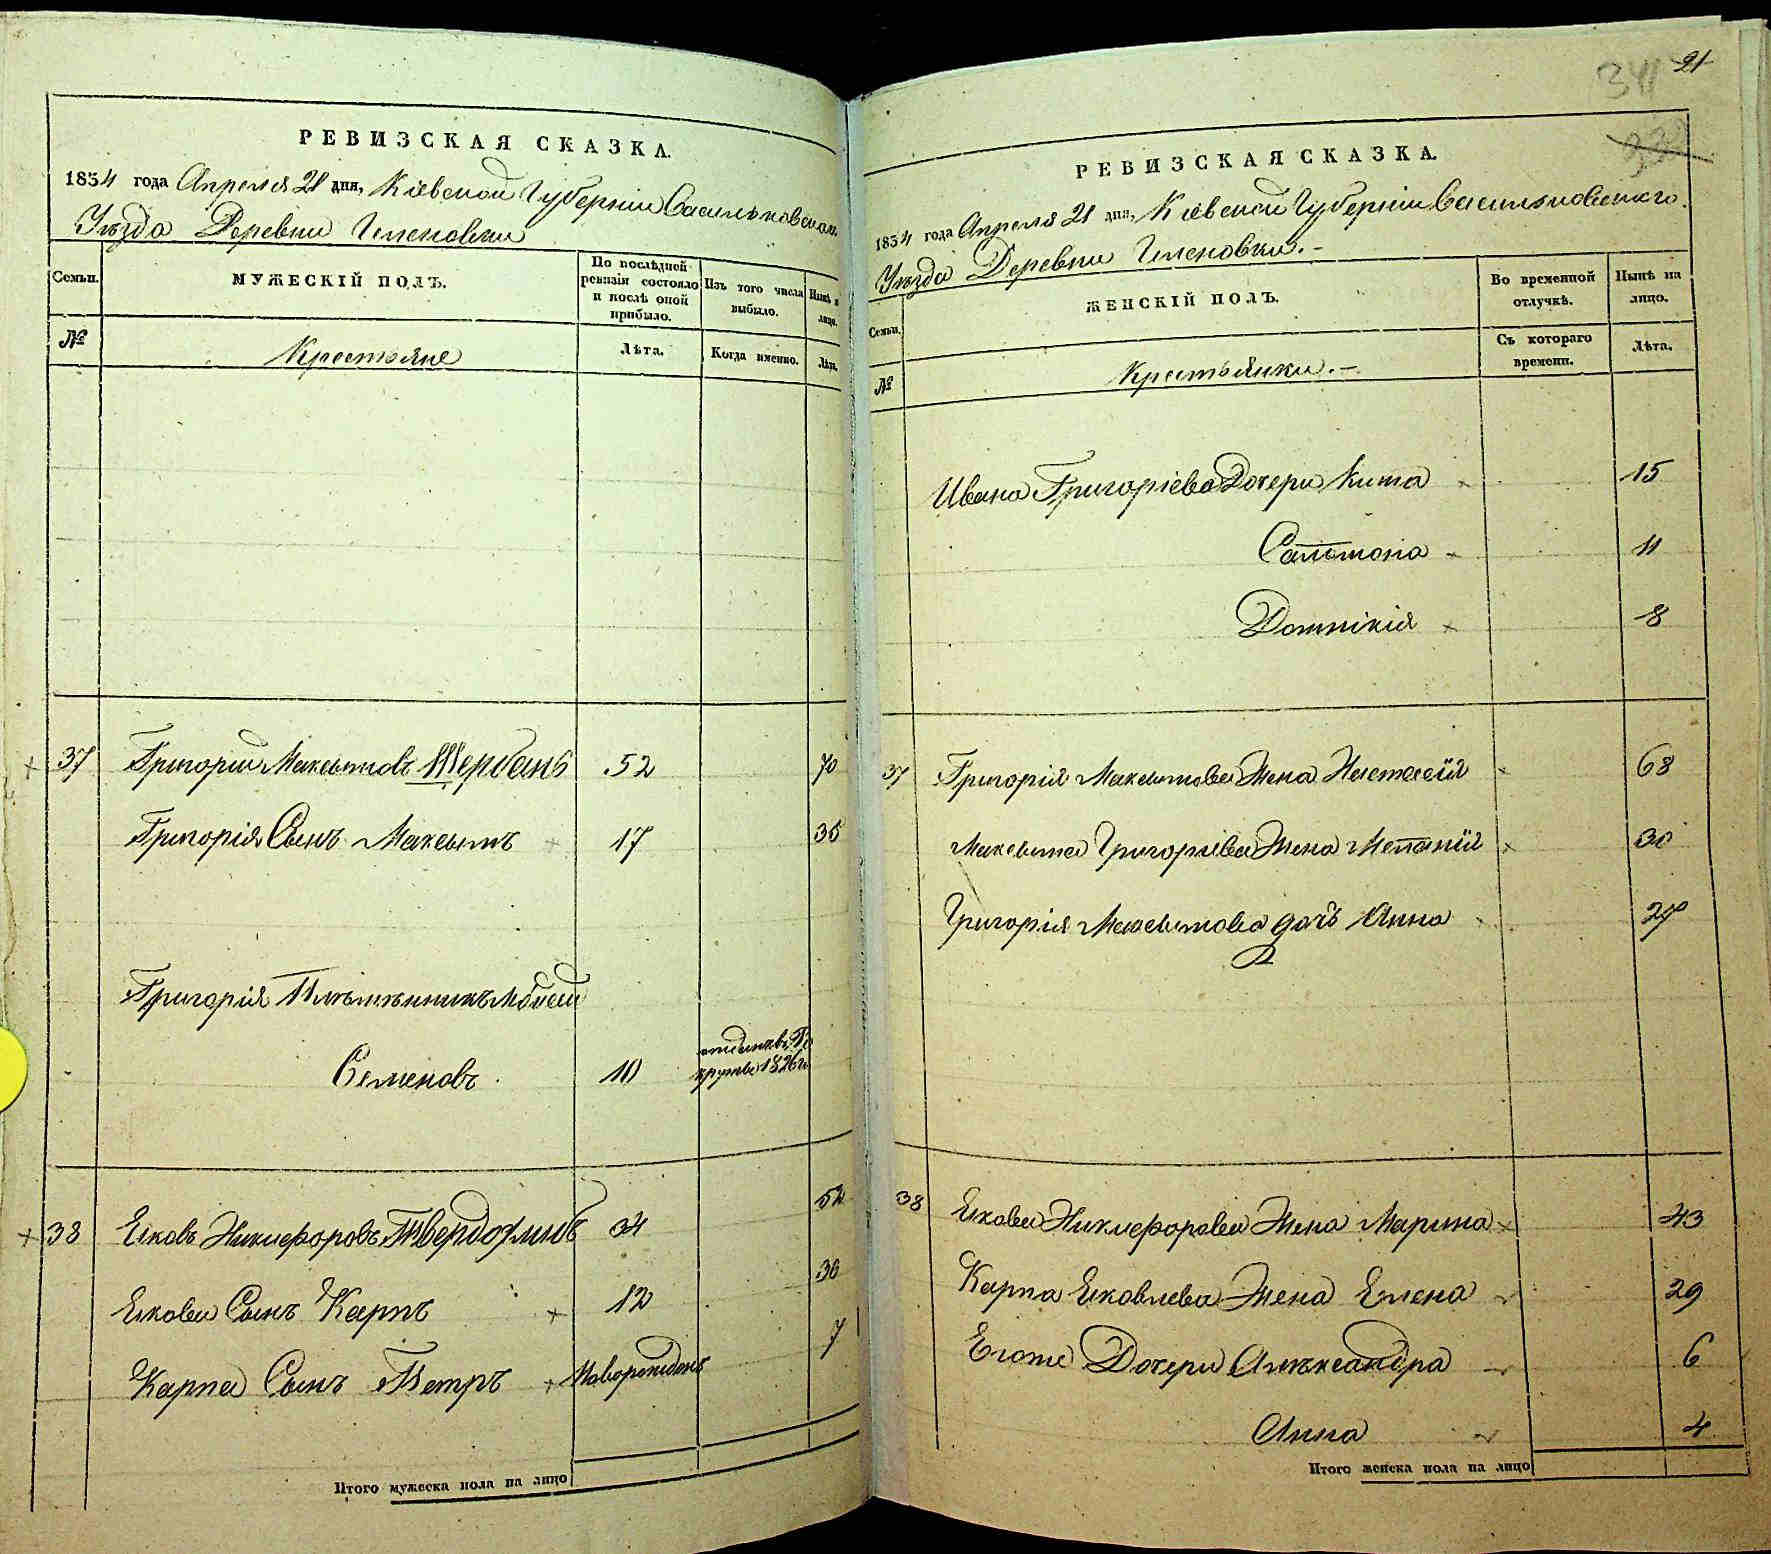 РЕВИЗСКАЯ СКАЗКА.
1854 года Апреля 21 дня, Кіевской Губерніи Васильковскаго
Уѣзда Деревни
Семьи.
МУЖЕСКІЙ ПОЛЪ.
По послѣдней ревизіи состояло и послѣ оной прибыло.
Изъ того числа выбыло.
Нынѣ на лицо.
№
Крестьяне
Лѣта.
Когда именно.
Лѣта.
37 Григорій Максымовъ Щербань 52 70
Григорія Сынъ Максымъ 17 35
Григорія Племянникъ
Семеновъ 10 1836
38 Яковъ Никифоровъ Твердохлибъ 34 52
Якова Сынъ Карпъ 12 30
Карпа Сынъ Петръ Новорожденъ 7
Итого мужеска пола на лицо
341 21
РЕВИЗСКАЯ СКАЗКА.
1854 года Апреля 21 дня, Кіевской Губерніи Васильковскаго
Уѣзда Деревни
Семьи.
ЖЕНСКІЙ ПОЛЪ.
Во временной отлучкѣ.
Нынѣ на лицо.
№
Крестьянки.
Съ котораго времени.
Лѣта.
Ивана Григоріева Дочери 15
11
Домникія 8
37 Григорія Максымова Жена Настасія 68
Максыма Григоріева Жена Меланія 30
Григорія Максымова дочь Анна
38 Якова Никифорова Жена Марина 43
Карпа Яковлева Жена Елена 29
Егоже Дочери Александра 6
Анна 4
Итого женска пола на лицо